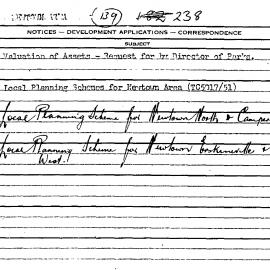 (139) 238
NOTICES — DEVELOPMENT APPLICATIONS — CORRESPONDENCE
SUBJECT
Valuation of Assets - Request for by Director of Parks.
Local Planning Schemes for Newtown Area (TG5717/51)
Local Planning Scheme for Newtown North & Camper
Local Planning Scheme for Newtown Erskineville &
West.